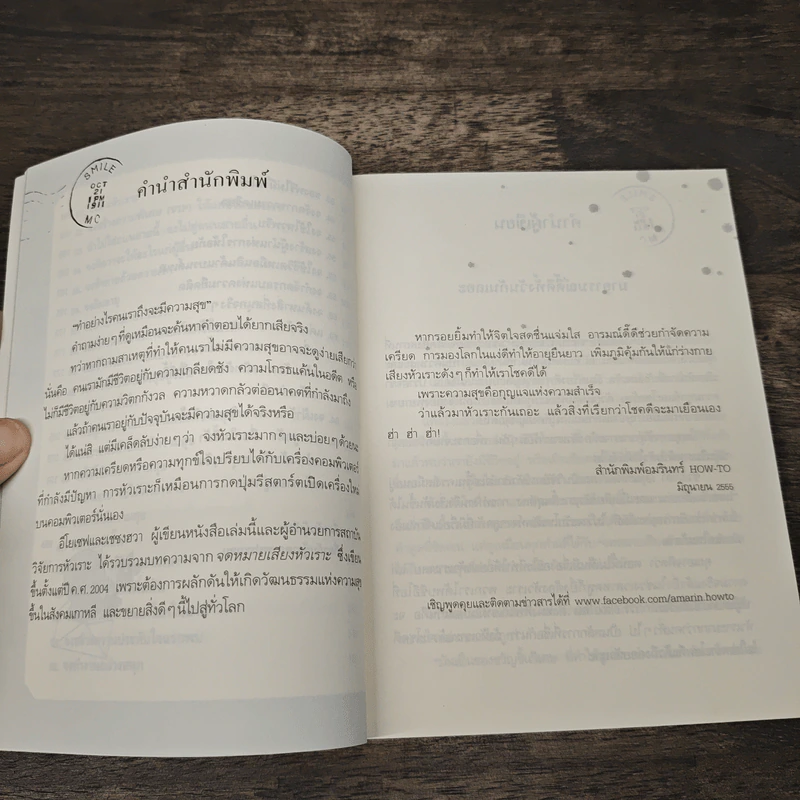 SMILE
OCT
21
1 PM
1911
MO
คำนำสำนักพิมพ์
"ทำอย่างไรคนเราถึงจะมีความสุข"
คำถามง่ายๆ ที่ดูเหมือนจะค้นหาคำตอบได้ยากเสียจริง
ทว่าหากถามสาเหตุที่ทำให้คนเราไม่มีความสุขอาจจะดูง่ายเสียกว่า
นั่นคือ คนเรามักมีชีวิตอยู่กับความเกลียดชัง ความโกรธแค้นในอดีต หรือ
ไม่ก็มีชีวิตอยู่กับความวิตกกังวล ความหวาดกลัวต่ออนาคตที่กำลังมาถึง
แล้วถ้าคนเราอยู่กับปัจจุบันจะมีความสุขได้จริงหรือ
ได้แน่สิ แต่มีเคล็ดลับง่ายๆ ว่า จงหัวเราะมากๆ และบ่อยๆ ด้วยนะ
หากความเครียดหรือความทุกข์ใจเปรียบได้กับเครื่องคอมพิวเตอร์
ที่กำลังมีปัญหา การหัวเราะก็เหมือนการกดปุ่มรีสตาร์ตเปิดเครื่องใหม่
บนคอมพิวเตอร์นั่นเอง
อีโยเซฟและเชซงฮวา ผู้เขียนหนังสือเล่มนี้และผู้อำนวยการสถาบัน
วิจัยการหัวเราะ ได้รวบรวมบทความจาก จดหมายเสียงหัวเราะ ซึ่งเขียน
ขึ้นตั้งแต่ปี ค.ศ. 2004 เพราะต้องการผลักดันให้เกิดวัฒนธรรมแห่งความสุข
ขึ้นในสังคมเกาหลี และขยายสิ่งดีๆ นี้ไปสู่ทั่วโลก
หากรอยยิ้มทำให้จิตใจสดชื่นแจ่มใส อารมณ์ดี๊ดีช่วยกำจัดความ
เครียด การมองโลกในแง่ดีทำให้อายุยืนยาว เพิ่มภูมิคุ้มกันให้แก่ร่างกาย
เสียงหัวเราะดังๆ ก็ทำให้เราโชคดีได้
เพราะความสุขคือกุญแจแห่งความสำเร็จ
ว่าแล้วมาหัวเราะกันเถอะ แล้วสิ่งที่เรียกว่าโชคดีจะมาเยือนเอง
ฮ่า ฮ่า ฮ่า!
สำนักพิมพ์อมรินทร์ HOW-TO
มิถุนายน 2555
เชิญพูดคุยและติดตามข่าวสารได้ที่ www.facebook.com/amarin.howto